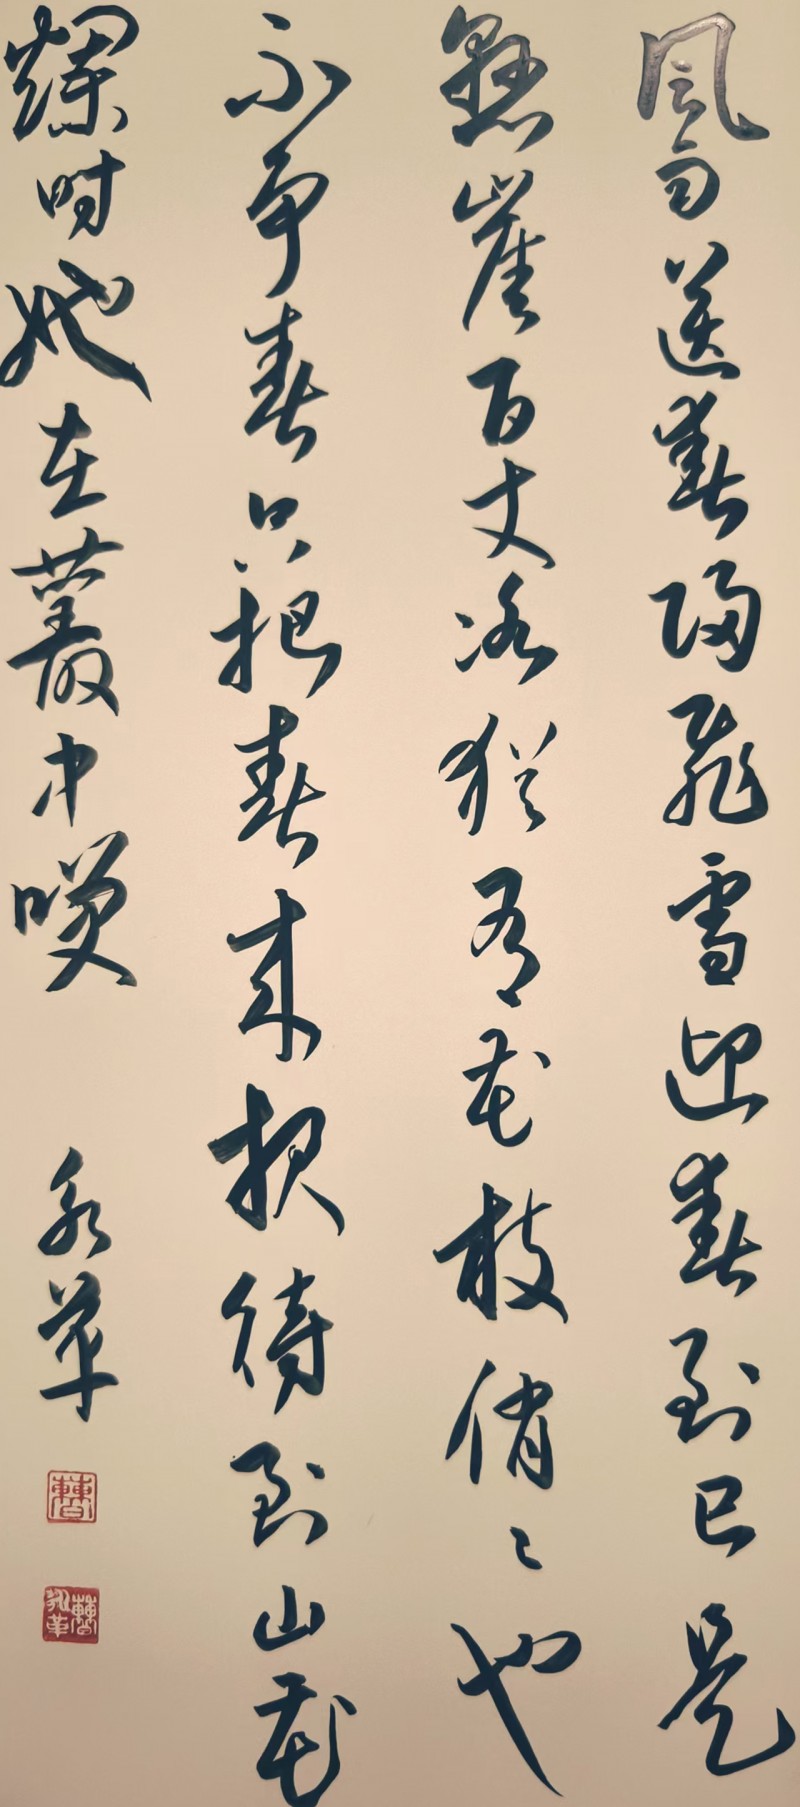 風雨送春歸飛雪迎春到已是
懸崖百丈冰猶有花枝俏〻也
不爭春只把春來報待到山花
爛時她在叢中咲
永
曹